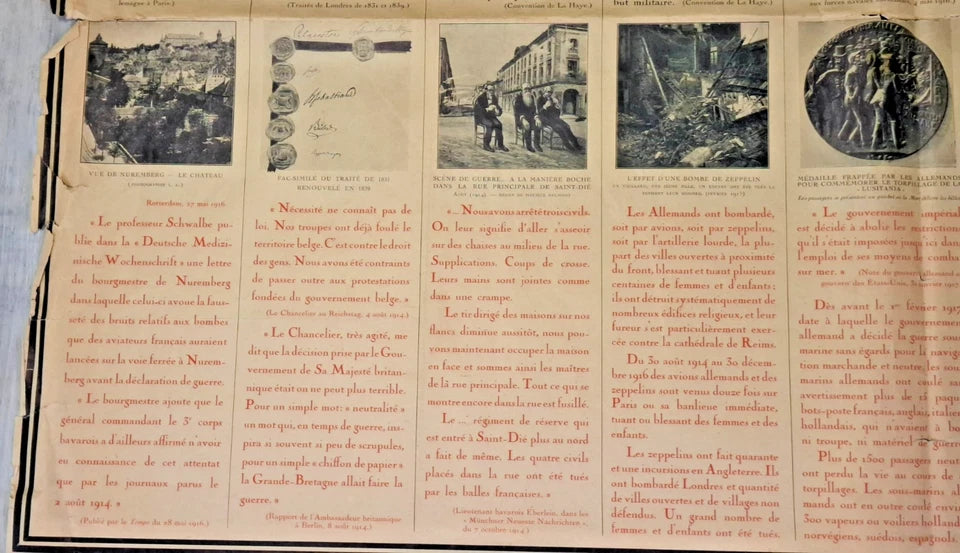 lemagne à Paris.)
VUE DE NUREMBERG — LE CHATEAU
Rotterdam, 27 mai 1916
« Le professeur Schwalbe pu-
blie dans la « Deutsche Medizi-
nische Wochenschrift » une lettre
du bourgmestre de Nuremberg
dans laquelle celui-ci avoue la faus-
seté des bruits relatifs aux bombes
que des aviateurs français auraient
lancées sur la voie ferrée à Nurem-
berg avant la déclaration de guerre.
« Le bourgmestre ajoute que le
général commandant le 3e corps
bavarois a d'ailleurs affirmé n'avoir
eu connaissance de cet attentat
que par les journaux parus le
2 août 1914. »
(Publié par le Temps du 28 mai 1916.)
(Traités de Londres de 1831 et 1839.)
FAC-SIMILÉ DU TRAITÉ DE 1831
RENOUVELÉ EN 1839
« Nécessité ne connaît pas de
loi. Nos troupes ont déjà foulé le
territoire belge. C'est contre le droit
des gens. Nous avons été contraints
de passer outre aux protestations
fondées du gouvernement belge. »
(Le Chancelier au Reichstag, 4 août 1914.)
« Le Chancelier, très agité, me
dit que la décision prise par le Gou-
vernement de Sa Majesté britan-
nique était on ne peut plus terrible.
Pour un simple mot: « neutralité »
un mot qui, en temps de guerre, ins-
pira si souvent si peu de scrupules,
pour un simple « chiffon de papier »
la Grande-Bretagne allait faire la
guerre. »
(Rapport de l'Ambassadeur britannique
à Berlin, 8 août 1914.)
(Convention de La Haye.)
SCÈNE DE GUERRE... A LA MANIÈRE BOCHE
DANS LA RUE PRINCIPALE DE SAINT-DIÉ
Août (1914)
«... Nous avons arrêté trois civils.
On leur signifie d'aller s'asseoir
sur des chaises au milieu de la rue.
Supplications. Coups de crosse.
Leurs mains sont jointes comme
dans une crampe.
Le tir dirigé des maisons sur nos
flancs diminue aussitôt, nous pou-
vons maintenant occuper la maison
en face et sommes ainsi les maîtres
de la rue principale. Tout ce qui se
montre encore dans la rue est fusillé.
Le ... régiment de réserve qui
est entré à Saint-Dié plus au nord
a fait de même. Les quatre civils
placés dans la rue ont été tués
par les balles françaises. »
(Lieutenant bavarois Eberlein, dans les
« Münchner Neueste Nachrichten »,
du 7 octobre 1914.)
but militaire. (Convention de La Haye.)
L'EFFET D'UNE BOMBE DE ZEPPELIN.
Les Allemands ont bombardé,
soit par avions, soit par zeppelins,
soit par l'artillerie lourde, la plu-
part des villes ouvertes à proximité
du front, blessant et tuant plusieurs
centaines de femmes et d'enfants;
ils ont détruit systématiquement de
nombreux édifices religieux, et leur
fureur s'est particulièrement exer-
cée contre la cathédrale de Reims.
Du 30 août 1914 au 30 décem-
bre 1916 des avions allemands et des
zeppelins sont venus douze fois sur
Paris ou sa banlieue immédiate,
tuant ou blessant des femmes et des
enfants.
Les zeppelins ont fait quarante
et une incursions en Angleterre. Ils
ont bombardé Londres et quantité
de villes ouvertes et de villages non
défendus. Un grand nombre de
femmes et d'enfants ont été tués.
MÉDAILLE FRAPPÉE PAR LES ALLEMANDS
POUR COMMÉMORER LE TORPILLAGE DE LA
LUSITANIA.
« Le gouvernement impérial
est décidé à abolir les restrictions
qu'il s'était imposées jusqu'ici dans
l'emploi de ses moyens de combat
sur mer. »
(Note du gouvernement allemand au
gouvern des États-Unis, 31 janvier 1917
Dès avant le 1er février 1917
date à laquelle le gouvernement
allemand a décidé la guerre sous-
marine sans égards pour la naviga
tion marchande et neutre, les sous
marins allemands ont coulé sans
avertissement plus de paque
bots-poste français, anglais, italiens
hollandais, qui n'avaient à bo
ni troupe, ni matériel de guerre
Plus de 1500 passagers neut
ont perdu la vie au cours de
torpillages. Les sous-marins al
mands ont en outre coulé envi
300 vapeurs ou voiliers holland
norvégiens, suédois, espagnols.